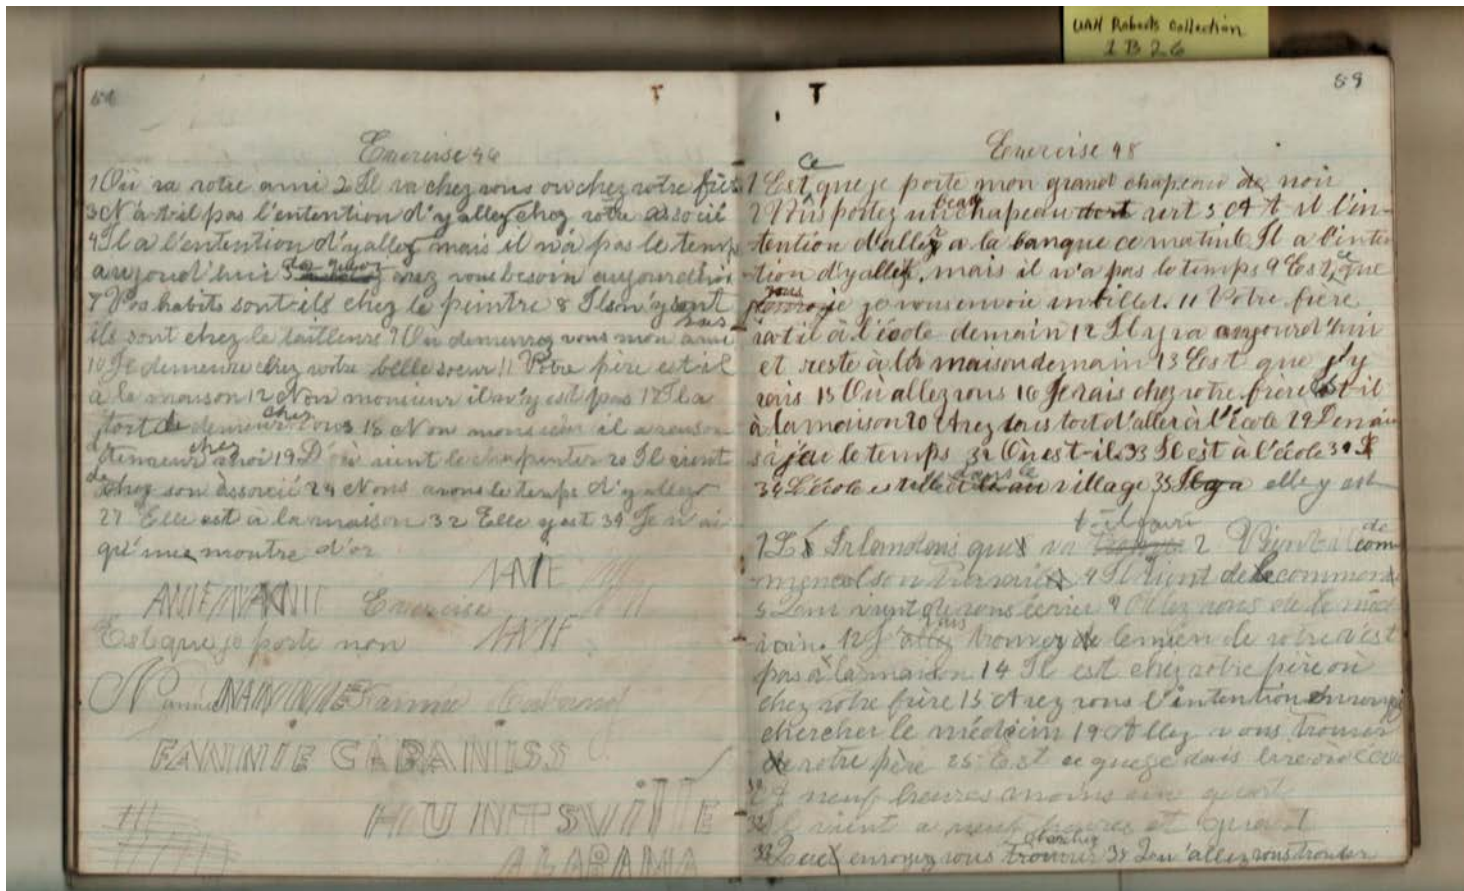 UAH Roberts Collection
1 B 26
59
T
T
Exercise 46
1 Où va votre ami 2 Il va chez vous ou chez votre frère
3 N'a-t-il pas l'entention d'y allez chez votre associé
4 Il a l'entention d'y allez mais il n'a pas le temps
aujourd'hui 5 avez vous besoin aujourd'hui
7 Vos habits sont-ils chez le peintre 8 Ils n'y sont pas
ils sont chez le tailleure 9 Où demeurez vous mon ami
10 Je demeure chez votre belle soeur 11 Votre père est il
à la maison 12 Non monsieur il n'y est pas 17 Il a
tort de demeurer chez vous 18 Non monsieur il a raison
demeurer chez moi 19 D'où vient le charpentier 20 Il vient
de chez son associé 24 Nous avons le temps d'y allez
27 Elle est à la maison 32 Elle y est 34 Je n'ai
qu'une montre d'or
Exercise
Est que je porte non
NANNIE Fannie
FANNIE CABANISS
HUNTSVILLE
ALABAMA
Exercise 48
1 Est ce que je porte mon grand chapeau de noir
2 Vous portez un beau chapeau dort vert 3 A t il l'in-
tention d'allez a la banque ce matin 6 Il a l'inten
tion d'y allez, mais il n'a pas le temps 9 Est ce que
je vous envoie un billet. 11 Votre frère
va t il à l'école demain 12 Il y va aujourd'hui
et reste à la maison demain 13 Est que j'y
vais 15 Où allez vous 16 Je vais chez votre frère Est il
à la maison 20 Avez vous tort d'aller à l'école 29 Demain
si j'ai le temps 32 Où est-il 33 Il est à l'école
34 L'école est elle dans le village 35 Il y a elle y est
1 L' Irlandais que va t-il faire 2 Vient il de com
mencer son travail 4 Il vient de le commencer
5 Leur vient de vous écrire 9 Allez vous de le méd
icin. 12 J' vais trouver de le mien de votre n'est
pas à la maison 14 Il est chez votre père où
chez votre frère 15 Avez vous l'intention d'envoyer
chercher le médecin 19 Allez vous trouver
de votre père 25 Est ce que je dois lire où écrire
neuf heures moins un quart
Il vient a neuf heures et quart
envoyez vous chercher 38 Qu'allez vous trouver